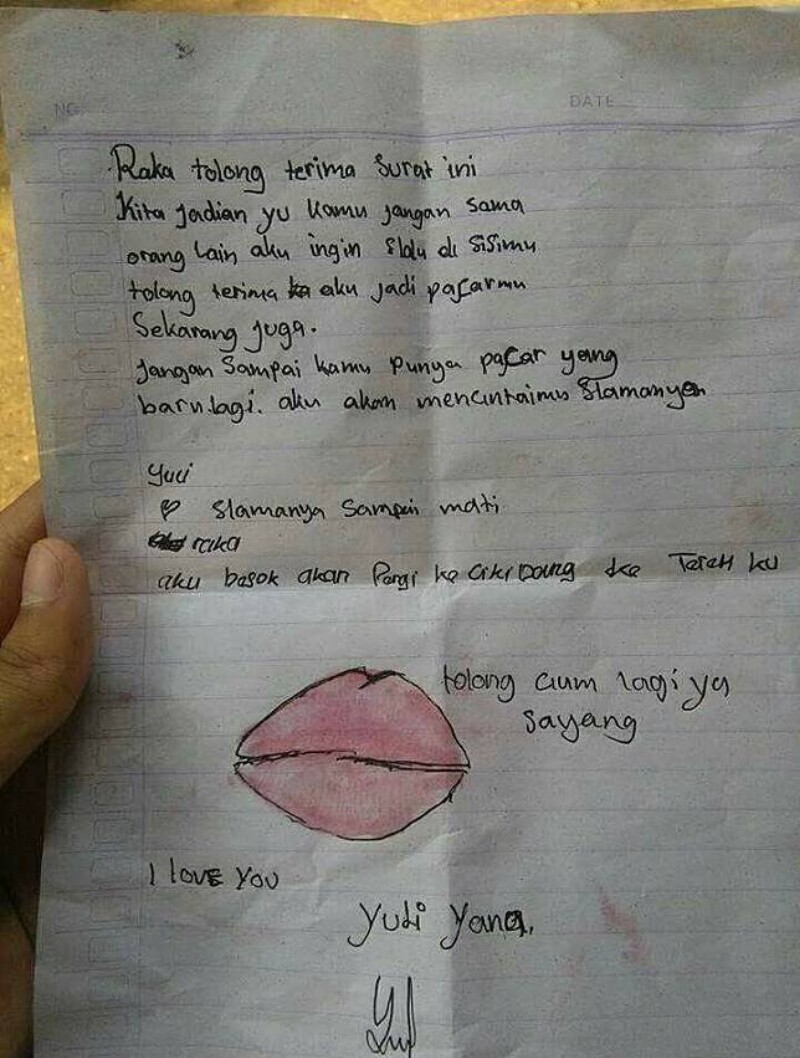 NO.
DATE
Raka tolong terima surat ini
Kita jadian yu kamu jangan sama
orang lain aku ingin slalu di sisimu
tolong terima aku jadi pacarmu
Sekarang juga.
jangan sampai kamu punya pacar yang
baru lagi. aku akan mencintaimu slamanya
Yuci
slamanya sampai mati
raka
aku besok akan Pergi ke cikidang ke Teteh ku
tolong cium lagi ya
sayang
I love you
Yuli Yana,